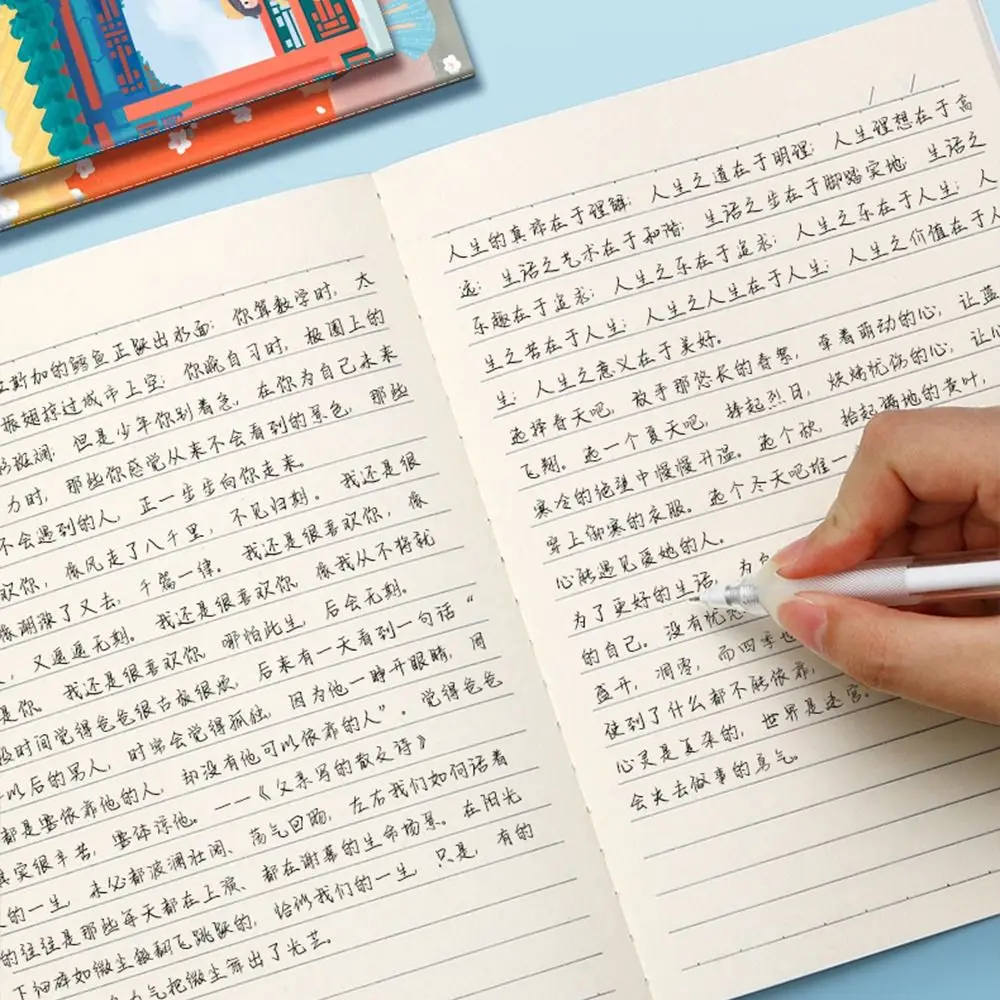 斯加的鳕鱼正跃出水面;你算数学时,太
振翅掠过城市上空;你晚自习时,极圈上的
斑斓,但是少年你别着急,在你为自己未来
力时,那些你感觉从来不会看到的景色,那些
不会遇到的人,正一步步向你走来。我还是很
欢你,像风走了八千里,不见归期。我还是很
像潮涨了又去,千篇一律。我还是很喜欢你,像
,又遥遥无期。我还是很喜欢你,像我从不将就
是你。我还是很喜欢你,哪怕此生,后会无期。
段时间觉得爸爸很古板很恶,后来有一天看到一句话“
以后的男人,时常会觉得孤独,因为他一睁开眼睛,周
都是要依靠他的人,却没有他可以依靠的人”。觉得爸爸
其实很辛苦,要体谅他。——《父亲写的散文诗》
的一生,未必都波澜壮阔、荡气回肠,左右我们如何活着
的往往是那些每天都在上演、都在谢幕的生命场景。在阳光
下细碎如微尘般翻飞跳跃的,恰似我们的一生,只是,有的
力气把微尘舞出了光芒。
人生的真谛在于理解;人生之道在于明理;人生理想在于高
远;生活之艺术在于和谐;生活之步在于脚踏实地;生活之
乐趣在于追求;人生之乐在于追求;人生之乐在于人生;人
生之苦在于人生;人生之人生在于人生;人生之价值在于人
生;人生之意义在于美好。
选择春天吧,放手那悠长的眷祭,牵着萌动的心,让蓝
飞翔。选一个夏天吧,捧起烈日,烘烤忧伤的心,让心
寒冷的绝望中慢慢升温。选个秋,拾起满地的黄叶,
穿上御寒的衣服。选个冬天吧堆一
心能遇见爱她的人。
为了更好的生活,为
的自己。没有忧
盛开,凋零,而四季也
使到了什么都不能依靠,
心灵是复杂的,世界是迷宫。
会失去做事的勇气。